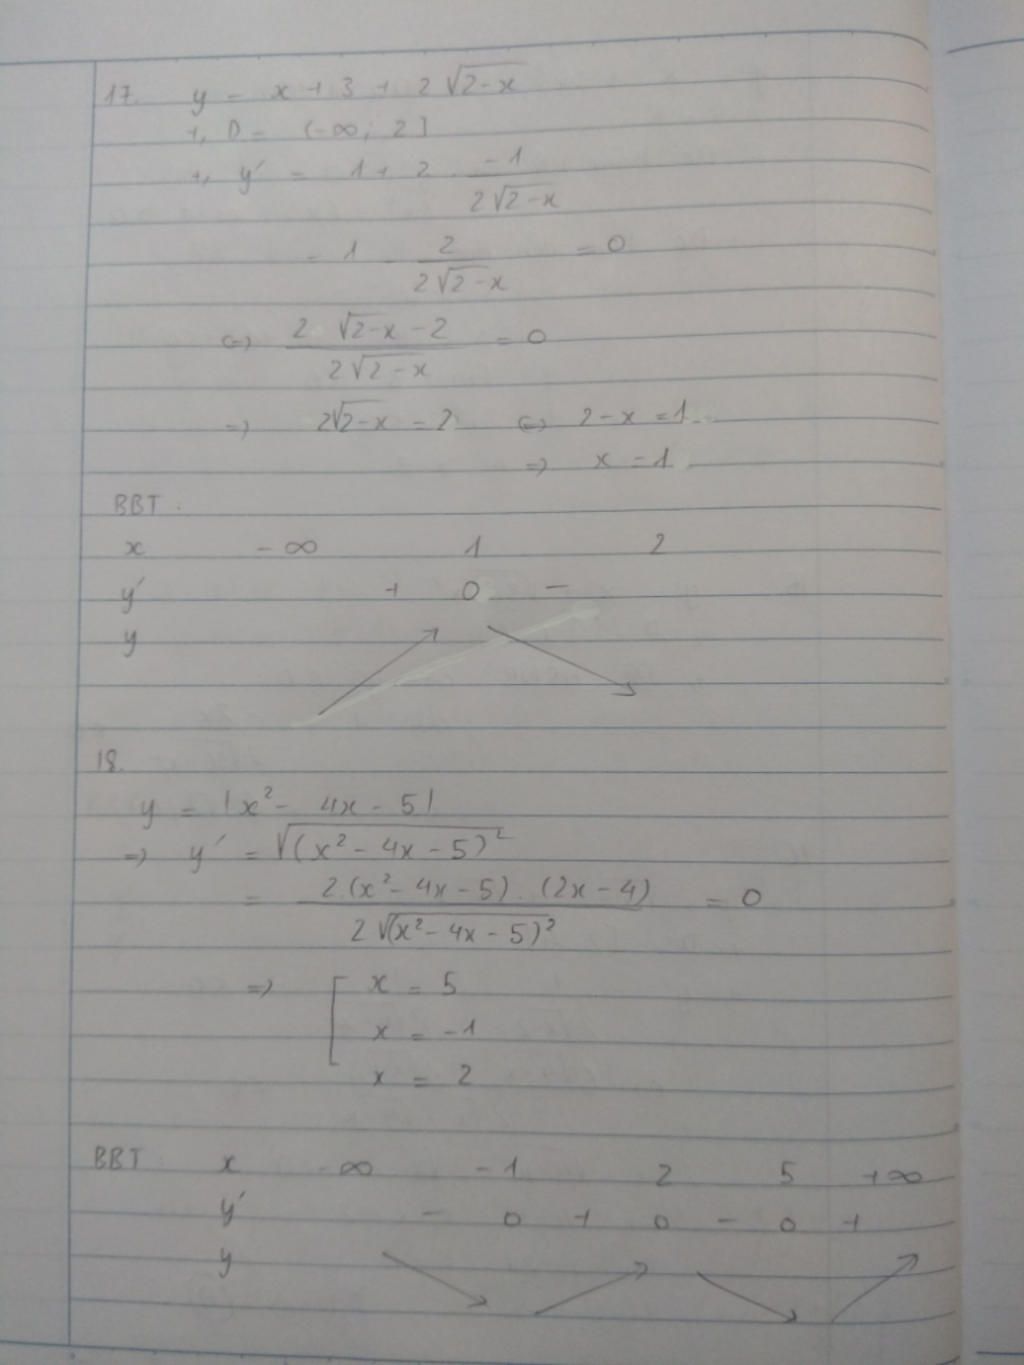 17. y = x + 3 + 2√(2-x)
+, D = (-∞; 2]
+, y' = 1 + 2 . -1/(2√(2-x))
= 1 - 2/(2√(2-x)) = 0
<=> (2√(2-x) - 2)/(2√(2-x)) = 0
=> 2√(2-x) = 2 <=> 2-x = 1
=> x = 1
BBT
x -∞ 1 2
y' + 0 -
y
18.
y = |x² - 4x - 5|
=> y' = √((x² - 4x - 5)²)
= (2.(x² - 4x - 5) . (2x - 4))/(2√((x² - 4x - 5)²)) = 0
=> [ x = 5
x = -1
x = 2
BBT x -∞ -1 2 5 +∞
y' - 0 + 0 - 0 +
y